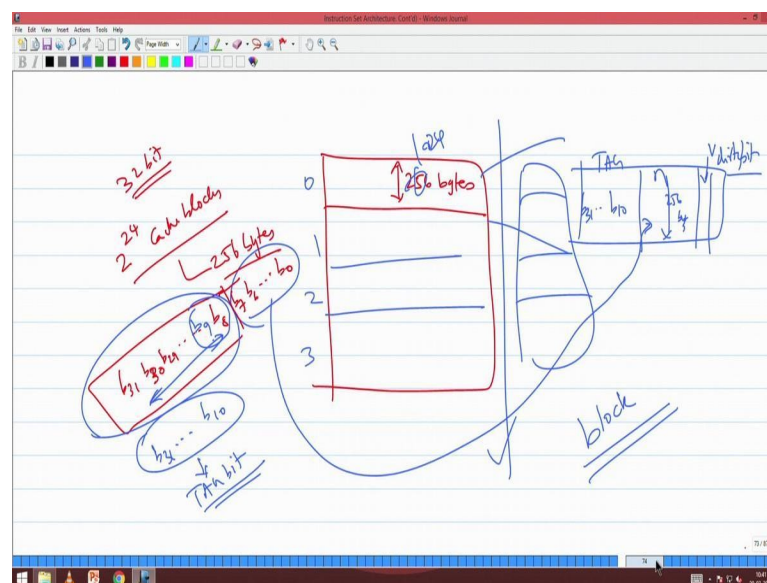 Instruction Set Architecture. Cont'd) - Windows Journal
File Edit View Insert Actions Tools Help
Page Width
B I
32 bit
2^24 Cache blocks
256 bytes
b31 b30 b29 ... b9 b8 b7 b6 ... b0
b31 ... b10
TAG bit
0
256 bytes
1
2
3
TAG
V dirty bit
b31 ... b10
256
block
73 / 8
74
10:41